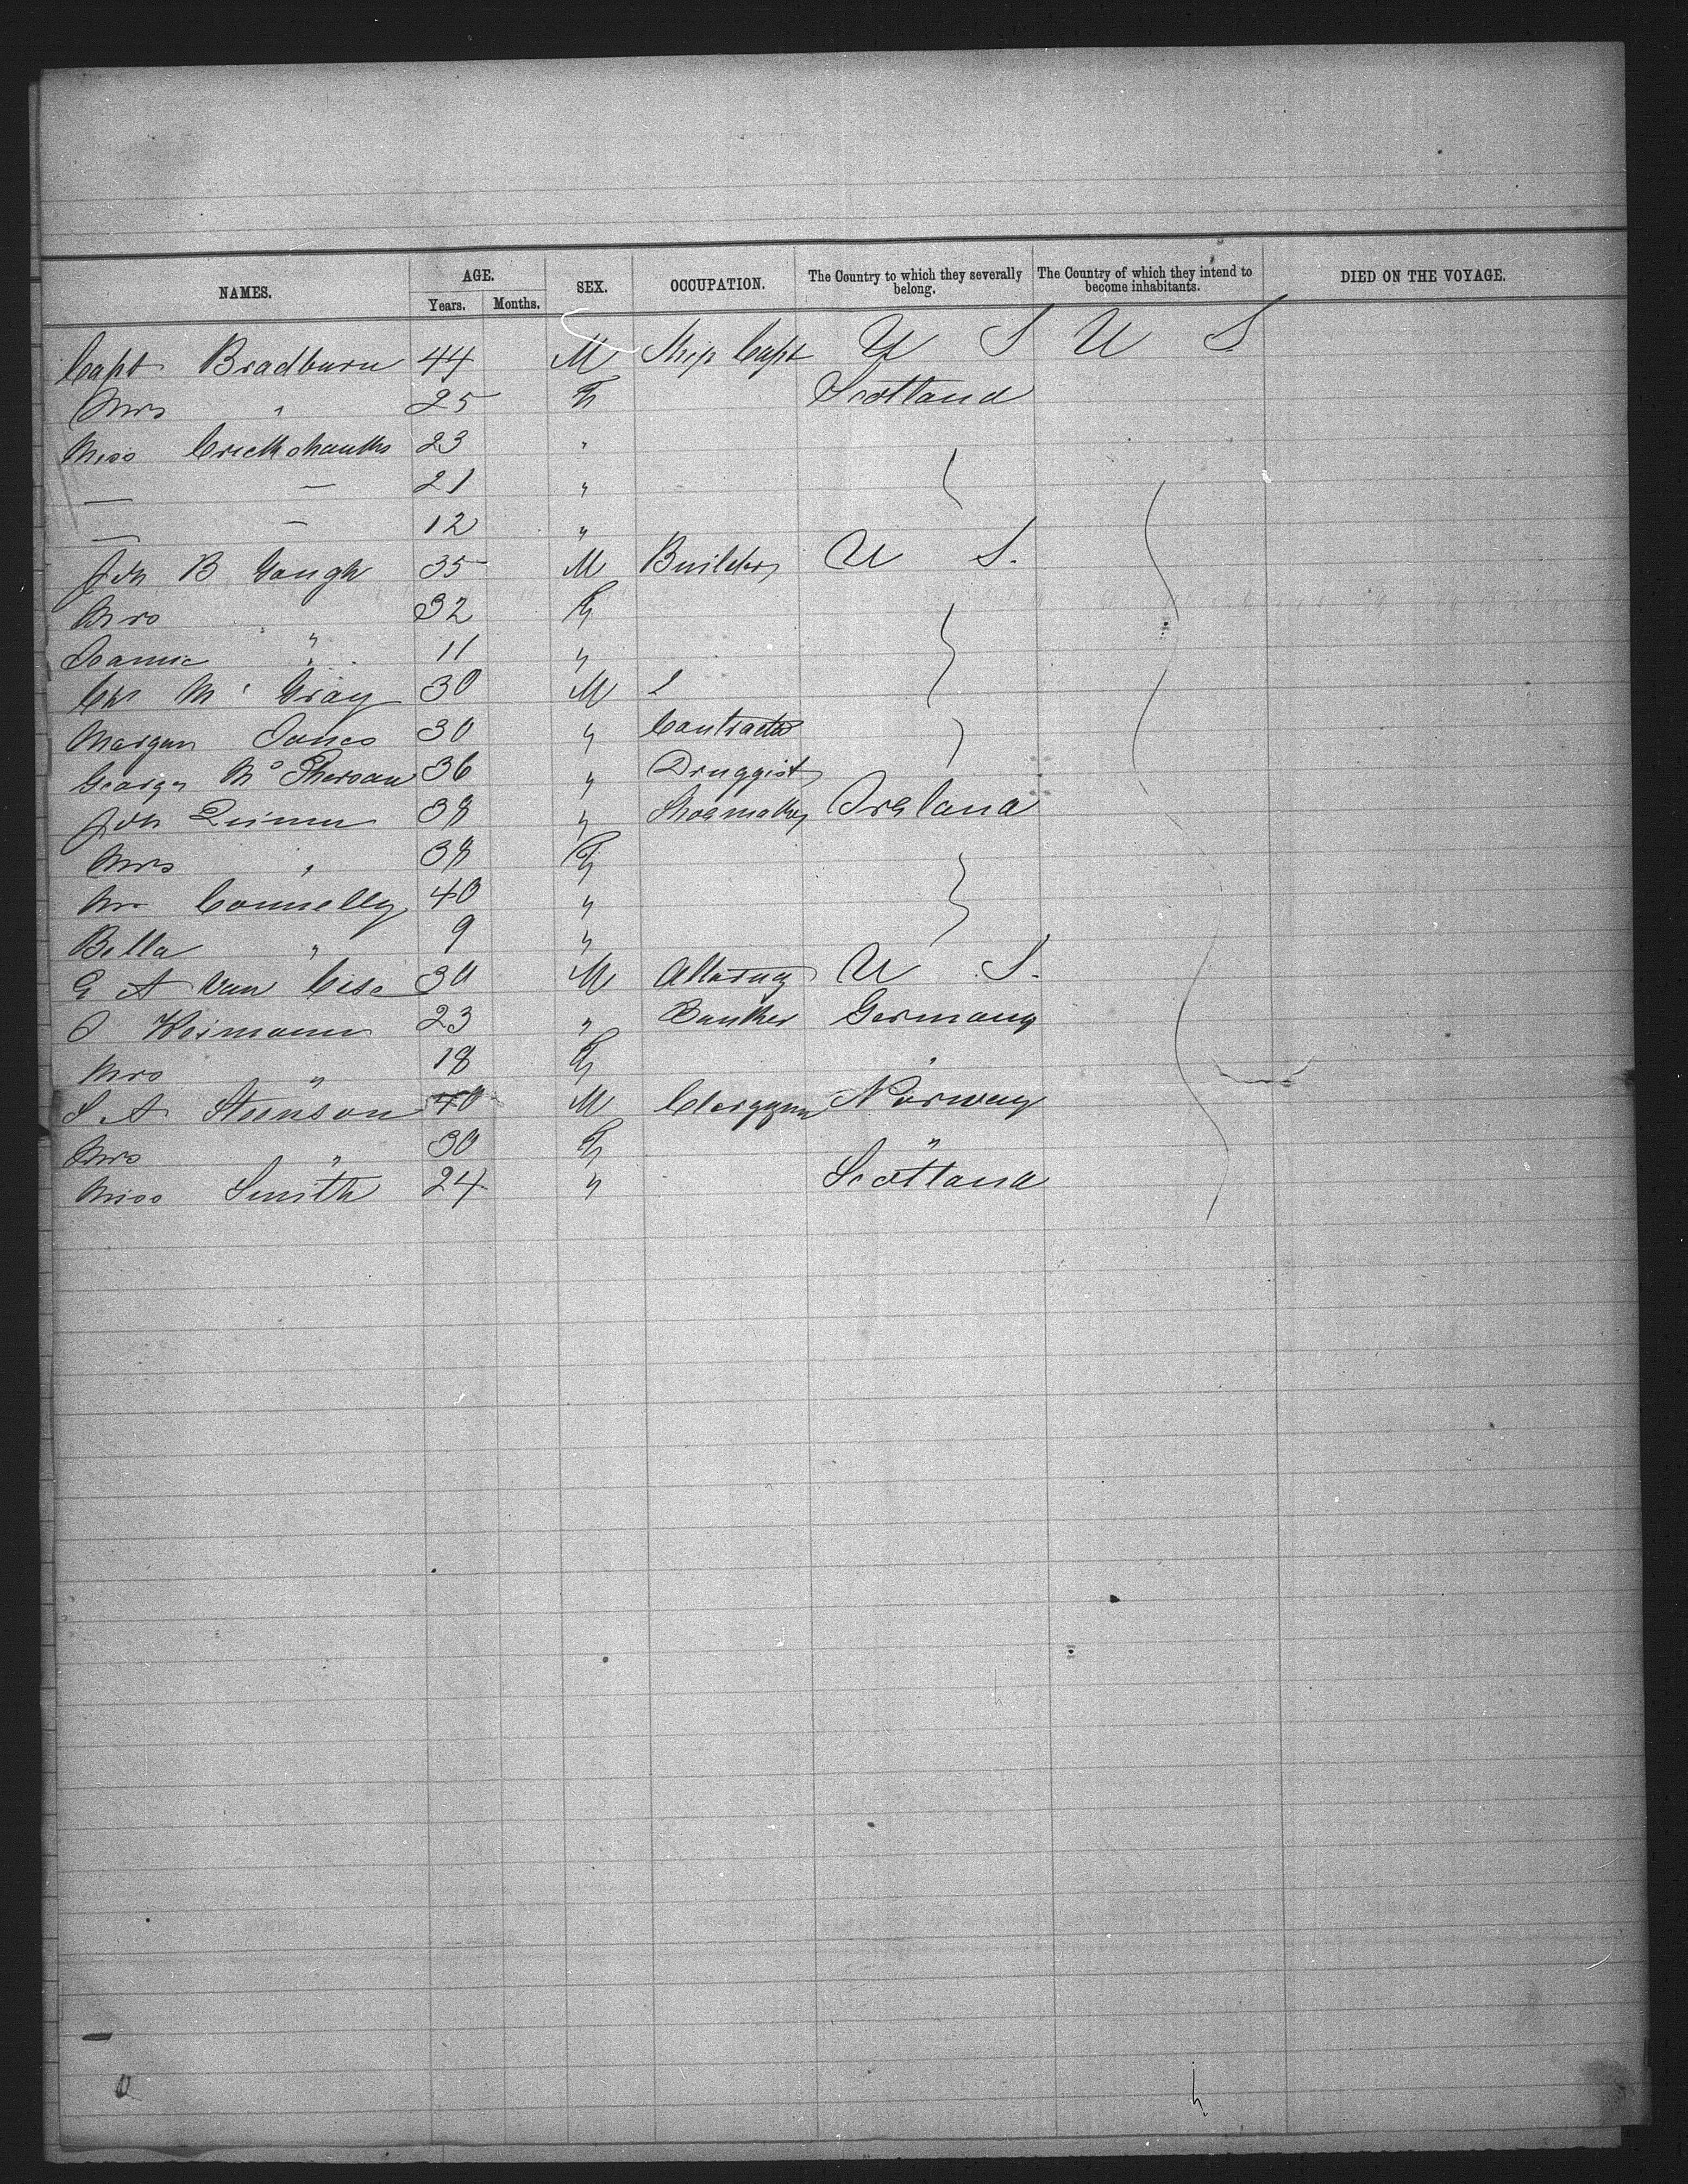 NAMES. AGE. Years. Months. SEX. OCCUPATION. The Country to which they severally belong. The Country of which they intend to become inhabitants. DIED ON THE VOYAGE.
Capt Bradburn 44 M Ship Capt U S U S
Mrs " 25 F Scotland
Miss Cruckshanks 23 "
— — 21 "
— — 12 "
Jon B Gough 35 M Builder U S.
Mrs " 32 F
" 11 "
Mc Gray 30 M
Morgan Jones 30 " Contractor
George Mc Pherson 36 " Druggist
Jon Quinn 38 " Shoemaker Ireland
Mrs " 38 F
Mrs Connelly 40 "
Bella " 9 "
E A Van Cise 30 M Attorney U S.
O Weimann 23 " Banker Germany
Mrs " 18 F "
S A Steenson 40 M Clergymn Norway
Mrs " 30 F "
Miss Smith 24 " Scotland